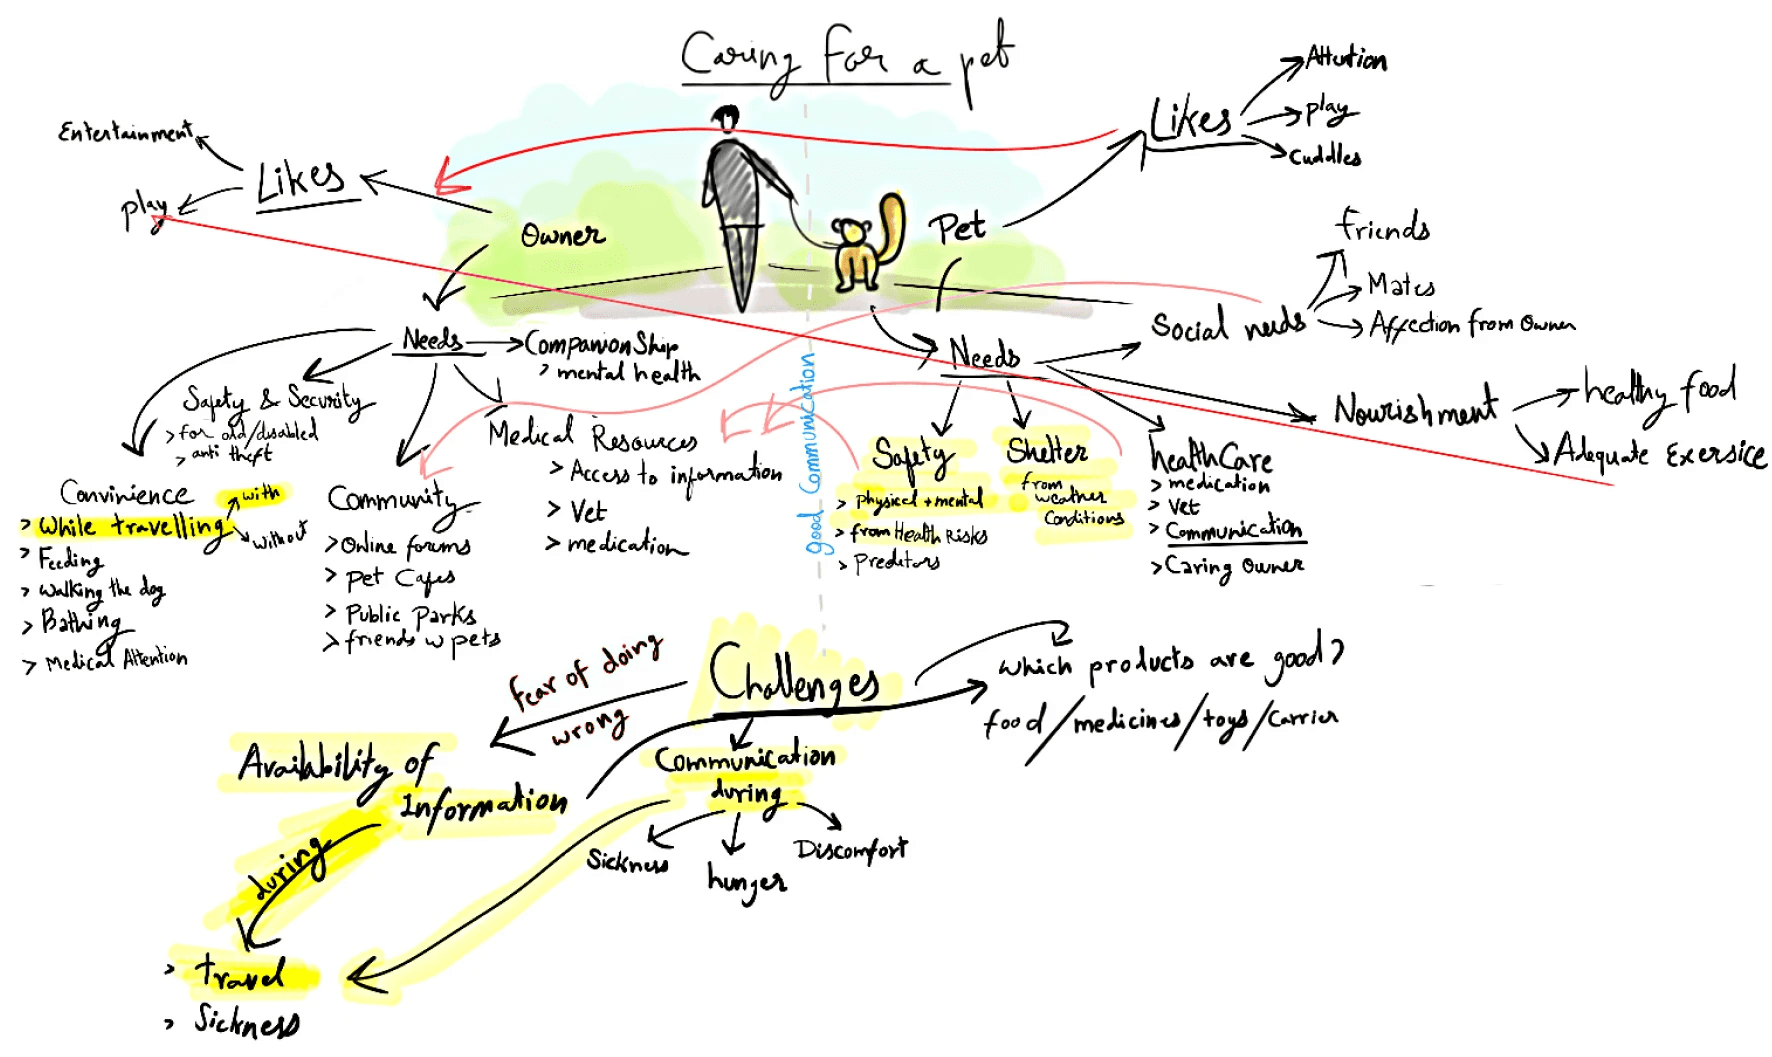 Caring for a pet
Entertainment
play
Likes
Owner
Pet
Likes
Attention
play
cuddles
Needs
Companionship
> mental health
Safety & Security
> for old/disabled
> anti theft
Convinience
> While travelling
with
without
> Feeding
> walking the dog
> Bathing
> Medical Attention
Community
> Online forums
> Pet Cafes
> Public Parks
> friends w pets
Medical Resources
> Access to information
> Vet
> medication
good Communication
Needs
Social needs
friends
Mates
Affection from Owner
Nourishment
healthy food
Adequate Exersice
Safety
> Physical + mental
> from Health Risks
> Predetors
Shelter
from
weather
Conditions
healthCare
> medication
> Vet
> Communication
> Caring Owner
Challenges
fear of doing
wrong
Availability of
Information
during
> travel
> Sickness
Communication
during
Sickness
hunger
Discomfort
which products are good?
food/medicines/toys/carrier